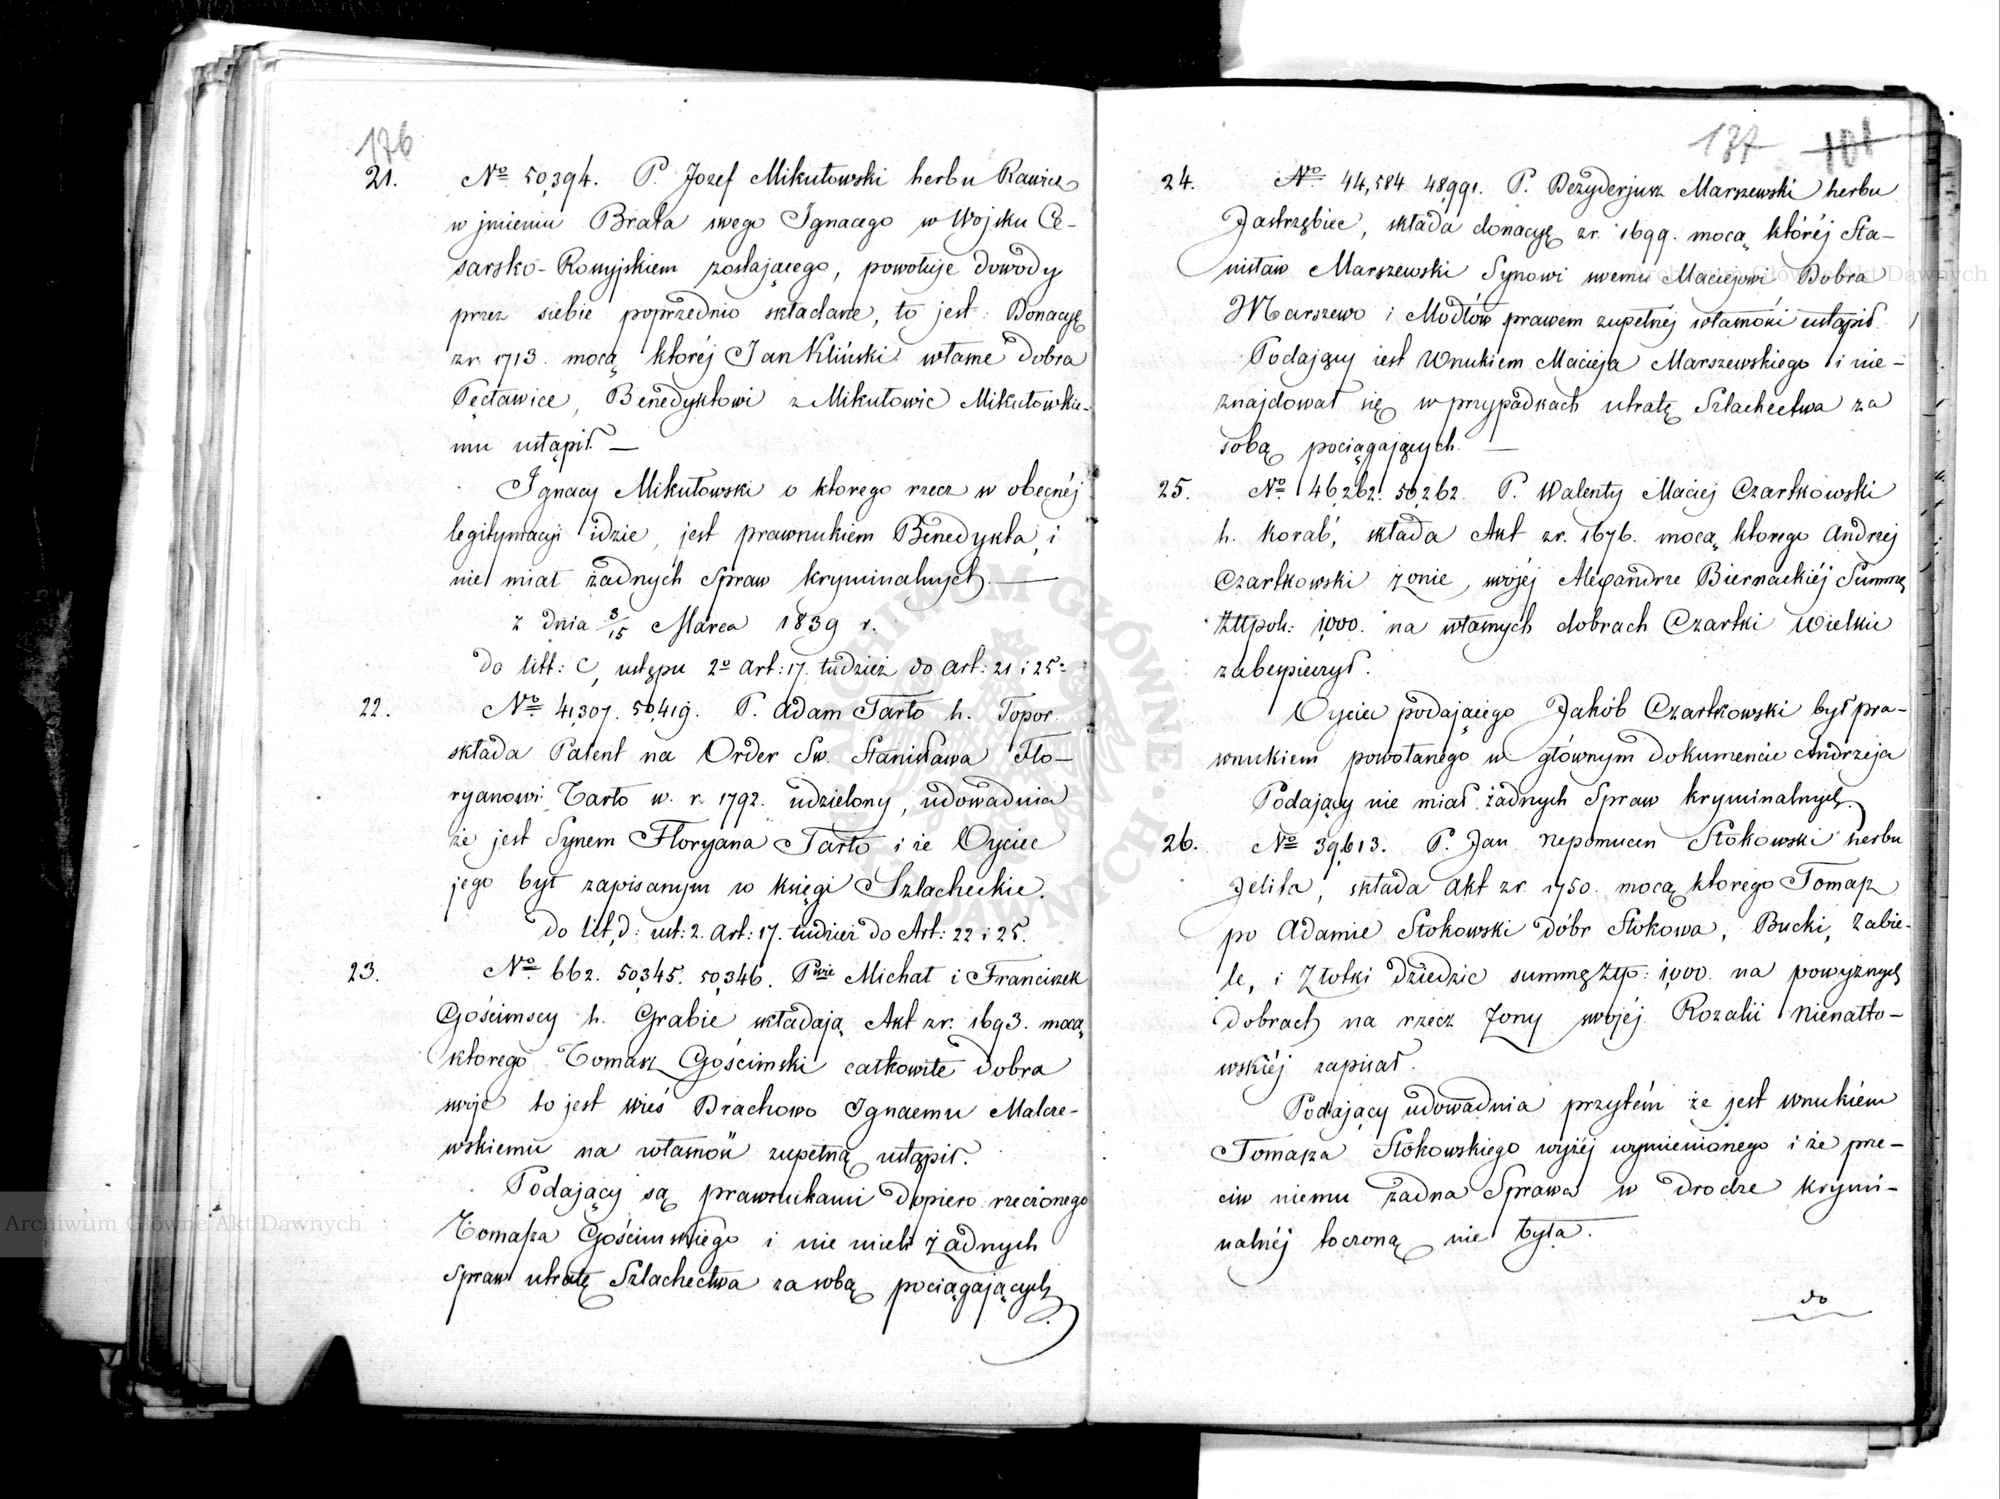 176
21. No 50,394. P. Jozef Mikułowski herbu Rawicz
w jmieniu Brata swego Ignacego w Wojsku Ce-
sarsko-Rossyjskiem zostającego, powołuje dowody
przez siebie poprzednio składane, to jest: Donacyę
z r. 1713. mocą któréj Jan Kliński własne dobra
Pęcławice, Benedyktowi z Mikułowic Mikułowskie-
mu ustąpił. —
Ignacy Mikułowski o ktorego rzecz w obecnéj
legitymacyi idzie, jest prawnukiem Benedykta, i
nie miał żadnych Spraw kryminalnych. —
z dnia 3/15 Marca 1839 r.
do litt: C, ustępu 2o art: 17. tudzież do art: 21 i 25.
22. No 41,307. 50,419. P. Adam Tarło h. Topor.
składa Patent na Order Sw. Stanisława Flo-
ryanowi Tarło w. r. 1792. udzielony, udowadnia
że jest Synem Floryana Tarło i że Oyciec
jego był zapisanym w księgi Szlacheckie.
do lit, d: ust: 2. art: 17. tudzież do Art: 22 i 25.
23. No 662. 50,345. 50,346. Pwie Michał i Franciszek
Gościmscy h. Grabie składają Akt z r. 1693. mocą
ktorego Tomasz Gościmski całkowite dobra
swoje to jest wieś Brachowo Ignacemu Malcze-
wskiemu na własność zupełną ustąpił.
Podający są prawnukami dopiero rzeczonego
Tomasza Gościmskiego i nie mieli żadnych
Spraw utratę Szlachectwa za sobą pociągających.
177 101
24. No 44,584 48,991. P. Dezyderjusz Marszewski herbu
Jastrzębiec, składa donacyę z r. 1699. mocą któréj Sta-
nisław Marszewski Synowi swemu Maciejowi Dobra
Marszewo i Modłów prawem zupełnéj własności ustąpił.
Podający iest Wnukiem Macieja Marszewskiego i nie-
znajdował się w przypadkach utratę Szlachectwa za
sobą pociągających. —
25. No 46,262. 50,262. P. Walenty Maciej Czartkowski
h. Korab, składa Akt z r. 1676. mocą ktorego Andrzej
Czartkowski żonie swojéj Alexandrze Biernackiéj Summę
Złtpols: 1,000. na własnych dobrach Czartki Wielkie
zabespieczył.
Oyciec podającego Jakób Czartkowski był pra-
wnukiem powołanego w głównym dokumencie Andrzeja
Podający nie miał żadnych Spraw kryminalnych.
26. No 39,613. P. Jan Nepomucen Stokowski herbu
Jelita, składa akt z r. 1750. mocą ktorego Tomasz
po Adamie Stokowski dóbr Stokowa, Bucki, Zabie-
le, i Złotki dziedzic summę Złtp: 1,000. na powyższych
dobrach na rzecz Żony swojéj Rozalii Nienałto-
wskiéj zapisał.
Podający udowadnia przytém że jest wnukiém
Tomasza Stokowskiego wyżéj wymienionego i że prze-
ciw niemu żadna Sprawa w drodze krymi-
nalnéj toczoną nie była.
do
Archiwum Główne Akt Dawnych
Archiwum Główne Akt Dawnych